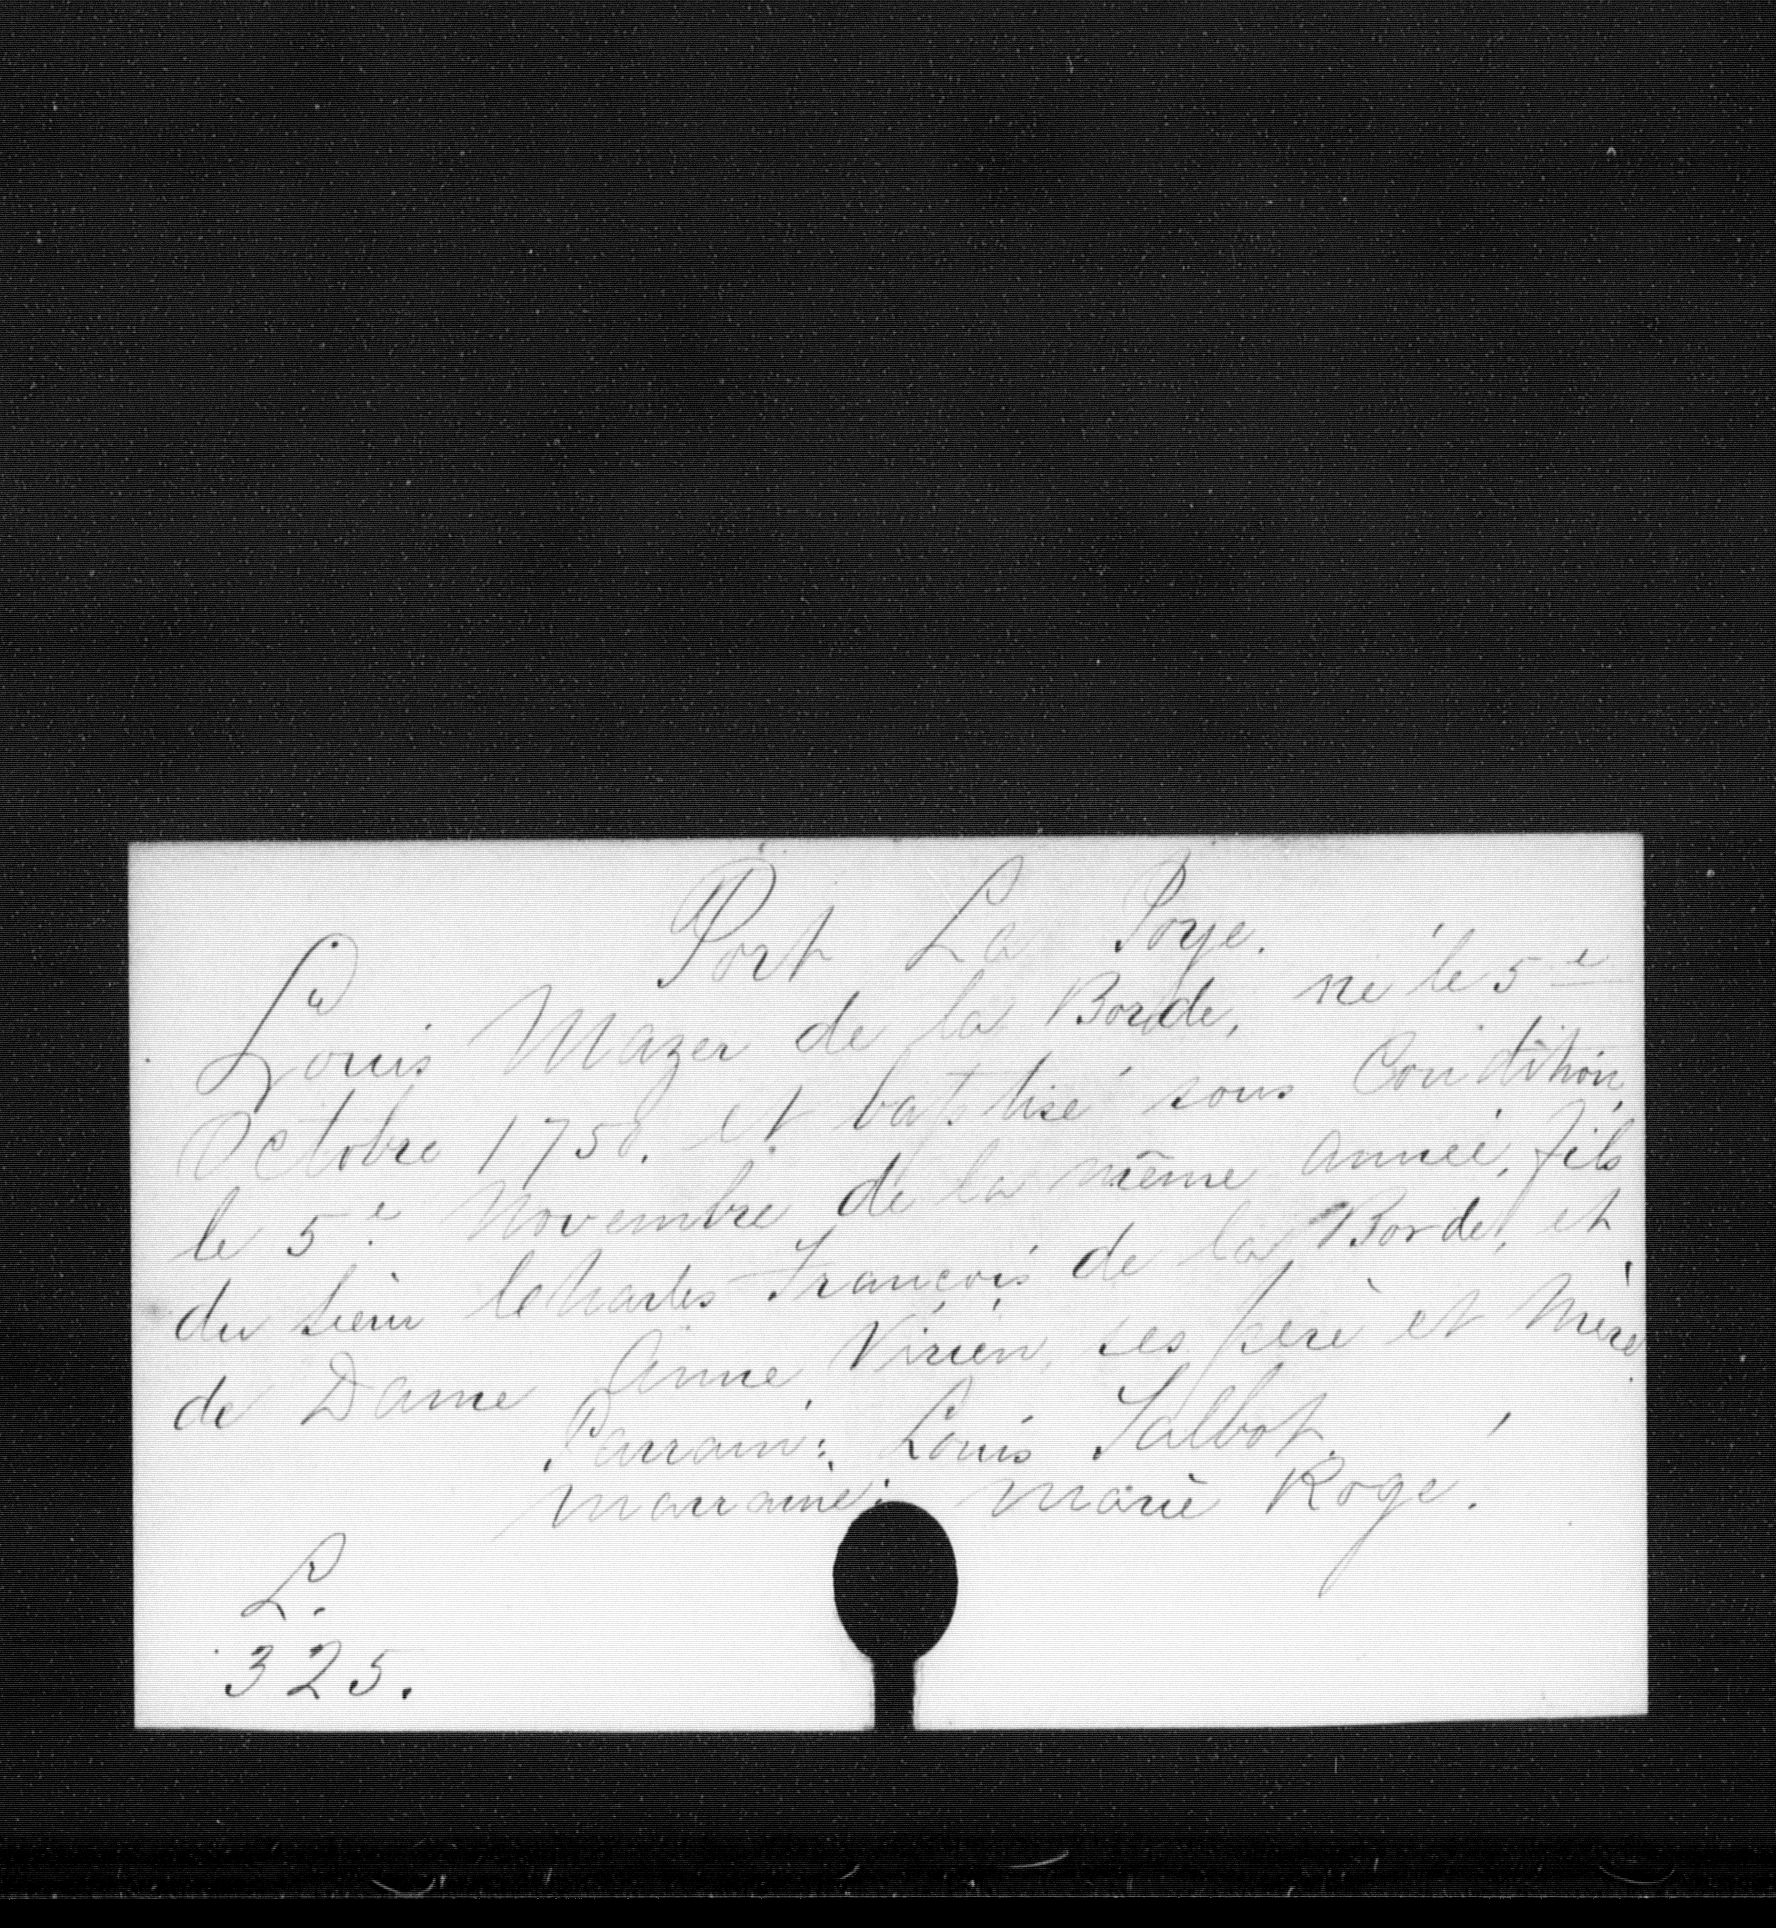 Port La Joye.
Louis Mazer de la Borde, né le 5e
Octobre 1750. et baptisé sous Condition,
le 5e Novembre de la même année, fils
du sieur Charles François de la Borde, et
de Dame Anne Virien, ses père et Mère.
Parrain: Louis Talbot.
Marraine: Marie Rogé.
L.
325.